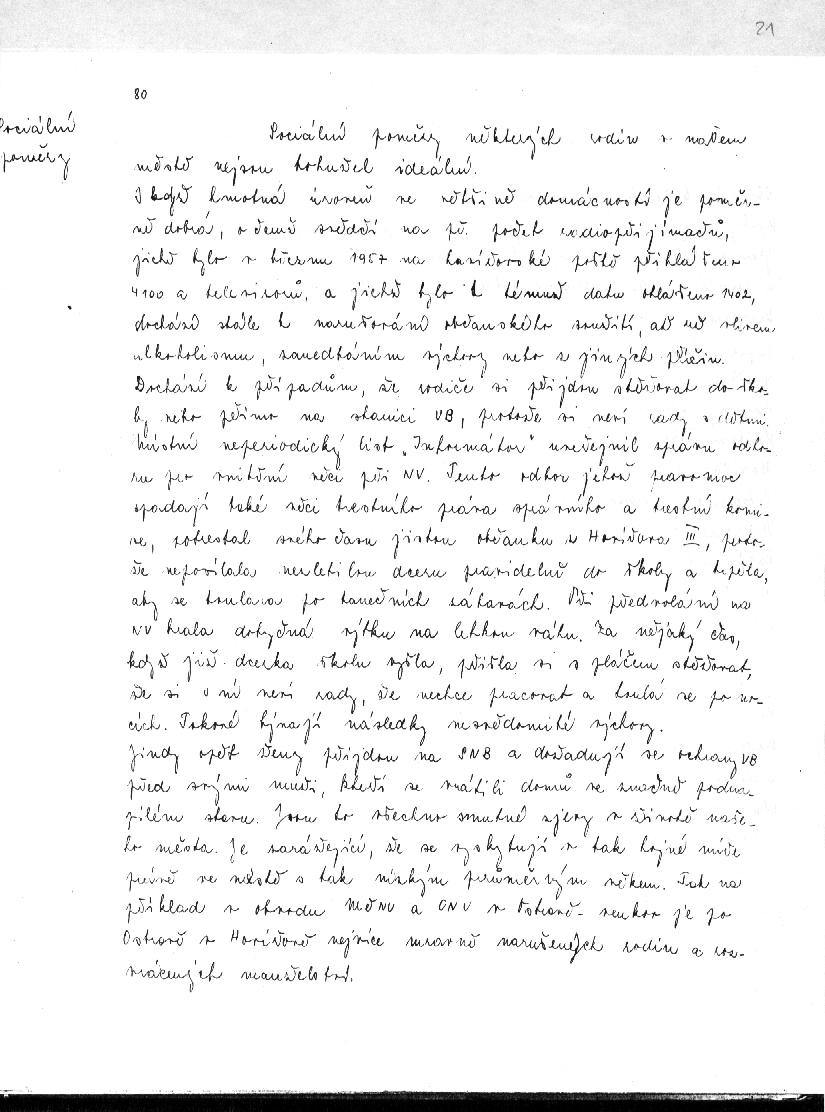 21
80
Sociální
poměry
Sociální poměry některých rodin v našem
městě nejsou bohužel ideální.
I když hmotná úroveň ve většině domácností je poměr-
ně dobrá, o čemž svědčí na př. počet radiopřijímačů,
jichž bylo v březnu 1957 na havířovské poště přihlášeno
4100 a televisorů, a jichž bylo k témuž datu ohlášeno 1402,
dochází stále k narušování občanského soužití, ať už vlivem
alkoholismu, zanedbáním výchovy nebo z jiných příčin.
Dochází k případům, že rodiče si přijdou stěžovat do ško-
ly nebo přímo na stanici VB, protože si není rady s dětmi.
Místní neperiodický list „Informátor" uveřejnil zprávu odbo-
ru pro vnitřní věci při NV. Tento odbor jehož pravomoc
spadají také věci trestního práva správního a trestní komi-
se, potrestal svého času jistou občanku z Havířova III, proto-
že neposílala nezletilou dceru pravidelně do školy a trpěla,
aby se toulala po tanečních zábavách. Při předvolání na
NV brala dotyčná výtku na lehkou váhu. Za nějaký čas,
když již dcerka školu vyšla, přišla si s pláčem stěžovat,
že si s ní není rady, že nechce pracovat a toulá se po no-
cích. Takové bývají následky nesvědomité výchovy.
Jindy opět ženy přijdou na SNB a dožadují se ochrany VB
před svými muži, kteří se vrátili domů ve značně podna-
pilém stavu. Jsou to všechno smutné zjevy v životě naše-
ho města. Je zarážející, že se vyskytují v tak hojné míře
právě ve městě s tak nízkým průměrným věkem. Tak na
příklad v obvodu MěNV a ONV v Ostravě-venkov je po
Ostravě v Havířově nejvíce mravně narušených rodin a roz-
vrácených manželství.